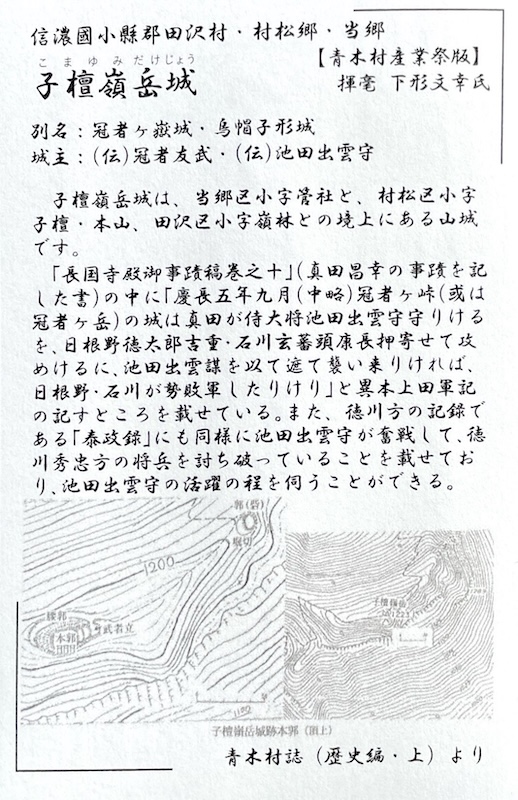 信濃國小縣郡田沢村・村松郷・当郷
【青木村産業祭版】
こまゆみだけじょう
子檀嶺岳城
揮毫 下形文幸氏
別名：冠者ヶ嶽城・烏帽子形城
城主：(伝)冠者友武・(伝)池田出雲守
子檀嶺岳城は、当郷区小字管社と、村松区小字
子檀・本山、田沢区小字嶺林との境上にある山城
です。
「長国寺殿御事蹟稿巻之十」(真田昌幸の事蹟を記
した書)の中に「慶長五年九月(中略)冠者ヶ峠(或は
冠者ヶ岳)の城は真田が侍大将池田出雲守守りける
を、日根野徳太郎吉重・石川玄蕃頭康長押寄せて攻
めけるに、池田出雲謀を以て遮て襲い来りければ、
日根野・石川が勢敗軍したりけり」と異本上田軍記
の記すところを載せている。また、徳川方の記録で
ある「泰政録」にも同様に池田出雲守が奮戦して、徳
川秀忠方の将兵を討ち破っていることを載せてお
り、池田出雲守の活躍の程を伺うことができる。
郭(砦)
堀切
1200
腰郭
本郭
武者立
1100
子檀嶺岳
子檀嶺岳城跡本郭(頂上)
青木村誌(歴史編・上)より